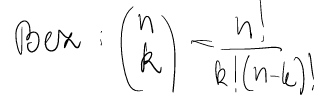 Bew : \binom{n}{k} < \frac{n!}{k!(n-k)!}